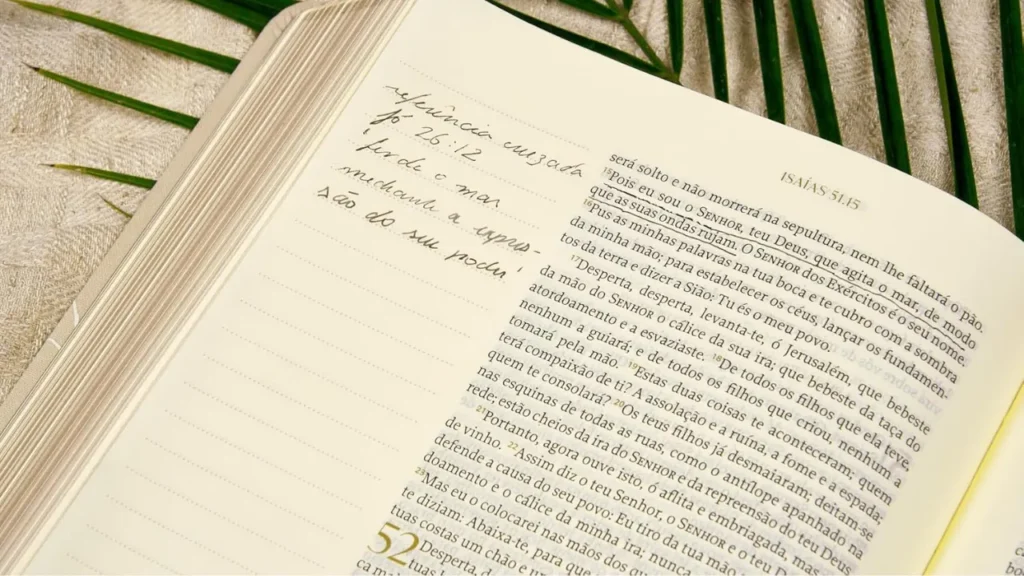 referência cruzada
Jó 26:12
'fende o mar
mediante a expres-
são do seu poder'
ISAÍAS 51.15
será solto e não morrerá na sepultura, nem lhe faltará o pão.
15Pois eu sou o SENHOR, teu Deus, que agita o mar, de modo
que as suas ondas rujam. O SENHOR dos Exércitos é o seu nome.
16Pus as minhas palavras na tua boca e te cubro com a sombra
da minha mão; para estabelecer os céus, lançar os fundamen-
tos da terra e dizer a Sião: Tu és o meu povo.
17Desperta, desperta, levanta-te, ó Jerusalém, que bebeste
da mão do SENHOR o cálice da sua ira, que bebeste da taça do
atordoamento e a esvaziaste. 18De todos os filhos que ela teve,
nenhum a guiará; e de todos os filhos que criou, nenhum a
tomará pela mão. 19Estas duas coisas te aconteceram; quem
terá compaixão de ti? A assolação e a ruína, a fome e a espada;
quem te consolará? 20Os teus filhos já desmaiaram; deitam-se
nas esquinas de todas as ruas, como o antílope apanhado na
rede; estão cheios da ira do SENHOR e da repreensão do teu Deus.
21Portanto, agora ouve isto, ó aflita e embriagada, mas
de vinho. 22Assim diz o teu Senhor, o SENHOR e o teu D
defende a causa do seu povo: Eu tiro da tua mão
doamento e o cálice da minha ira; nunca
23Mas eu o colocarei nas mãos dos
te diziam: Abaixa-te, para que
tuas costas um chão e
52 Desperta, d
tuas